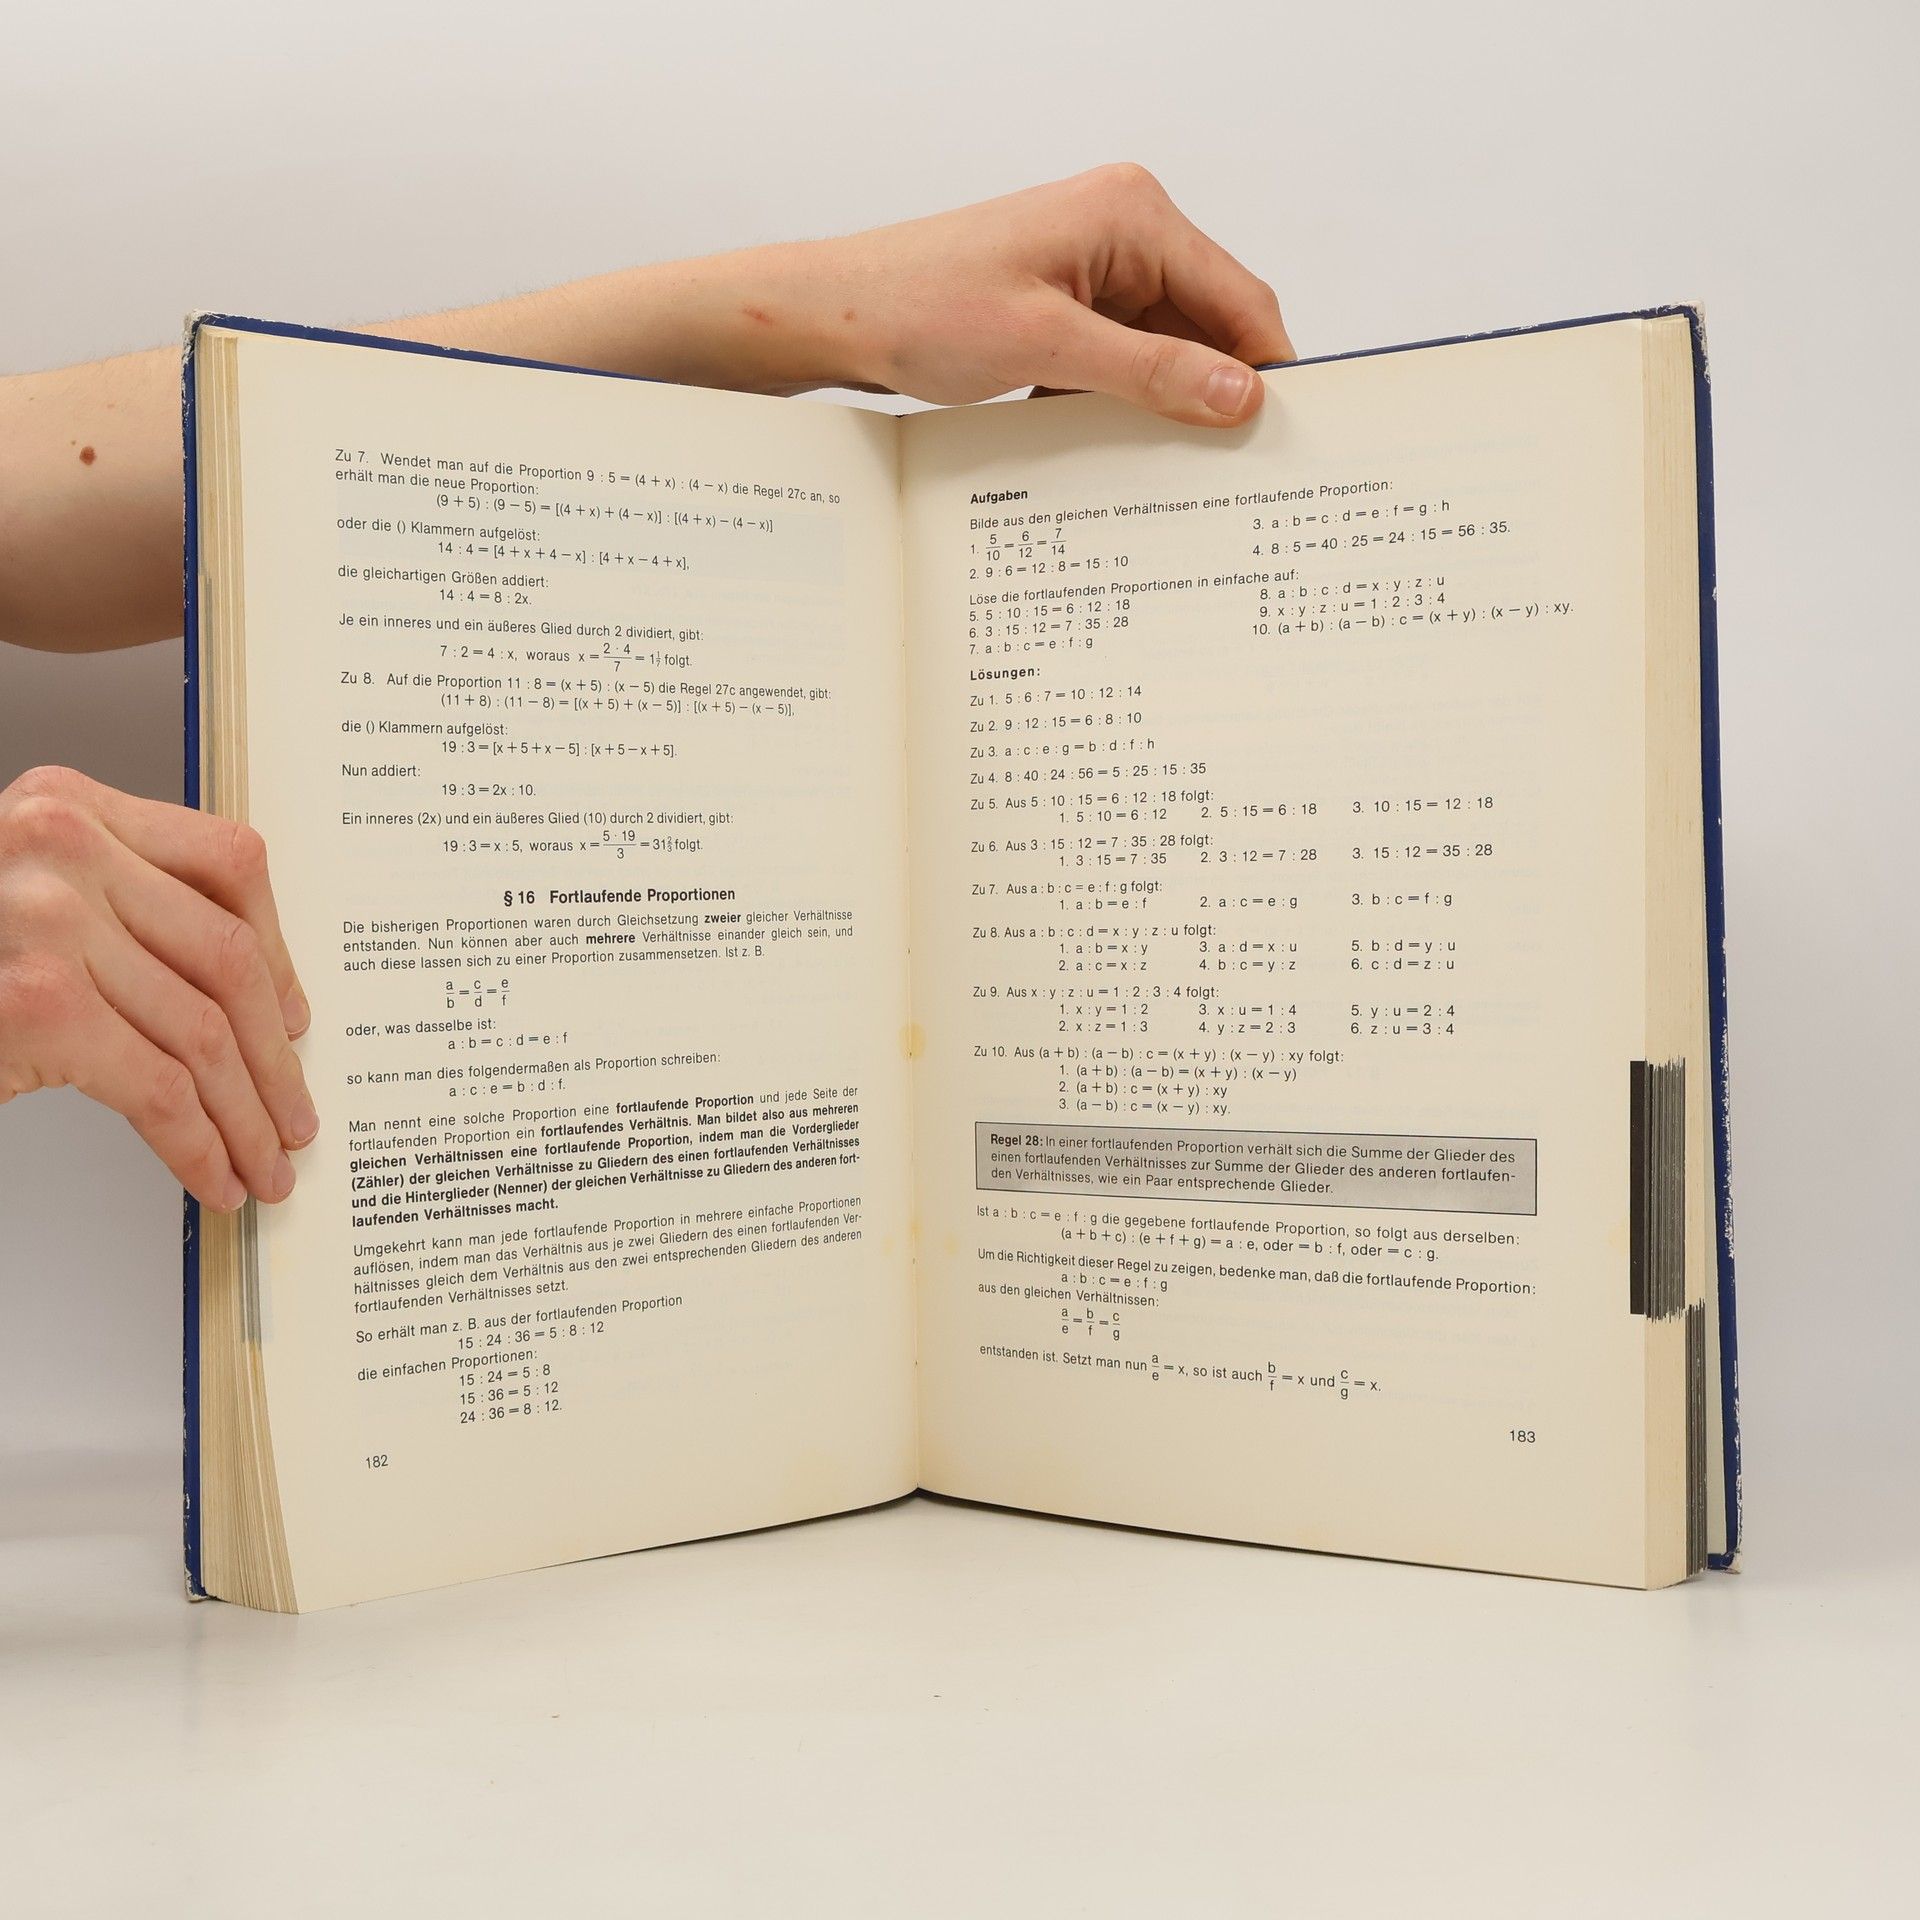 Zu 7. Wendet man auf die Proportion 9 : 5 = (4 + x) : (4 − x) die Regel 27c an, so
erhält man die neue Proportion:
(9 + 5) : (9 − 5) = [(4 + x) + (4 − x)] : [(4 + x) − (4 − x)]
oder die () Klammern aufgelöst:
14 : 4 = [4 + x + 4 − x] : [4 + x − 4 + x],
die gleichartigen Größen addiert:
14 : 4 = 8 : 2x.
Je ein inneres und ein äußeres Glied durch 2 dividiert, gibt:
7 : 2 = 4 : x, woraus x = 2 · 4 / 7 = 1 1/7 folgt.
Zu 8. Auf die Proportion 11 : 8 = (x + 5) : (x − 5) die Regel 27c angewendet, gibt:
(11 + 8) : (11 − 8) = [(x + 5) + (x − 5)] : [(x + 5) − (x − 5)],
die () Klammern aufgelöst:
19 : 3 = [x + 5 + x − 5] : [x + 5 − x + 5].
Nun addiert:
19 : 3 = 2x : 10.
Ein inneres (2x) und ein äußeres Glied (10) durch 2 dividiert, gibt:
19 : 3 = x : 5, woraus x = 5 · 19 / 3 = 31 2/3 folgt.
§ 16 Fortlaufende Proportionen
Die bisherigen Proportionen waren durch Gleichsetzung zweier gleicher Verhältnisse
entstanden. Nun können aber auch mehrere Verhältnisse einander gleich sein, und
auch diese lassen sich zu einer Proportion zusammensetzen. Ist z. B.
a/b = c/d = e/f
oder, was dasselbe ist:
a : b = c : d = e : f
so kann man dies folgendermaßen als Proportion schreiben:
a : c : e = b : d : f.
Man nennt eine solche Proportion eine fortlaufende Proportion und jede Seite der
fortlaufenden Proportion ein fortlaufendes Verhältnis. Man bildet also aus mehreren
gleichen Verhältnissen eine fortlaufende Proportion, indem man die Vorderglieder
(Zähler) der gleichen Verhältnisse zu Gliedern des einen fortlaufenden Verhältnisses
und die Hinterglieder (Nenner) der gleichen Verhältnisse zu Gliedern des anderen fort-
laufenden Verhältnisses macht.
Umgekehrt kann man jede fortlaufende Proportion in mehrere einfache Proportionen
auflösen, indem man das Verhältnis aus je zwei Gliedern des einen fortlaufenden Ver-
hältnisses gleich dem Verhältnis aus den zwei entsprechenden Gliedern des anderen
fortlaufenden Verhältnisses setzt.
So erhält man z. B. aus der fortlaufenden Proportion
15 : 24 : 36 = 5 : 8 : 12
die einfachen Proportionen:
15 : 24 = 5 : 8
15 : 36 = 5 : 12
24 : 36 = 8 : 12.
182
Aufgaben
Bilde aus den gleichen Verhältnissen eine fortlaufende Proportion:
1. 5/10 = 6/12 = 7/14
2. 9 : 6 = 12 : 8 = 15 : 10
3. a : b = c : d = e : f = g : h
4. 8 : 5 = 40 : 25 = 24 : 15 = 56 : 35.
Löse die fortlaufenden Proportionen in einfache auf:
5. 5 : 10 : 15 = 6 : 12 : 18
6. 3 : 15 : 12 = 7 : 35 : 28
7. a : b : c = e : f : g
8. a : b : c : d = x : y : z : u
9. x : y : z : u = 1 : 2 : 3 : 4
10. (a + b) : (a − b) : c = (x + y) : (x − y) : xy.
Lösungen:
Zu 1. 5 : 6 : 7 = 10 : 12 : 14
Zu 2. 9 : 12 : 15 = 6 : 8 : 10
Zu 3. a : c : e : g = b : d : f : h
Zu 4. 8 : 40 : 24 : 56 = 5 : 25 : 15 : 35
Zu 5. Aus 5 : 10 : 15 = 6 : 12 : 18 folgt:
1. 5 : 10 = 6 : 12 2. 5 : 15 = 6 : 18 3. 10 : 15 = 12 : 18
Zu 6. Aus 3 : 15 : 12 = 7 : 35 : 28 folgt:
1. 3 : 15 = 7 : 35 2. 3 : 12 = 7 : 28 3. 15 : 12 = 35 : 28
Zu 7. Aus a : b : c = e : f : g folgt:
1. a : b = e : f 2. a : c = e : g 3. b : c = f : g
Zu 8. Aus a : b : c : d = x : y : z : u folgt:
1. a : b = x : y 3. a : d = x : u 5. b : d = y : u
2. a : c = x : z 4. b : c = y : z 6. c : d = z : u
Zu 9. Aus x : y : z : u = 1 : 2 : 3 : 4 folgt:
1. x : y = 1 : 2 3. x : u = 1 : 4 5. y : u = 2 : 4
2. x : z = 1 : 3 4. y : z = 2 : 3 6. z : u = 3 : 4
Zu 10. Aus (a + b) : (a − b) : c = (x + y) : (x − y) : xy folgt:
1. (a + b) : (a − b) = (x + y) : (x − y)
2. (a + b) : c = (x + y) : xy
3. (a − b) : c = (x − y) : xy.
Regel 28: In einer fortlaufenden Proportion verhält sich die Summe der Glieder des
einen fortlaufenden Verhältnisses zur Summe der Glieder des anderen fortlaufen-
den Verhältnisses, wie ein Paar entsprechende Glieder.
Ist a : b : c = e : f : g die gegebene fortlaufende Proportion, so folgt aus derselben:
(a + b + c) : (e + f + g) = a : e, oder = b : f, oder = c : g.
Um die Richtigkeit dieser Regel zu zeigen, bedenke man, daß die fortlaufende Proportion:
a : b : c = e : f : g
aus den gleichen Verhältnissen:
a/e = b/f = c/g
entstanden ist. Setzt man nun a/e = x, so ist auch b/f = x und c/g = x.
183